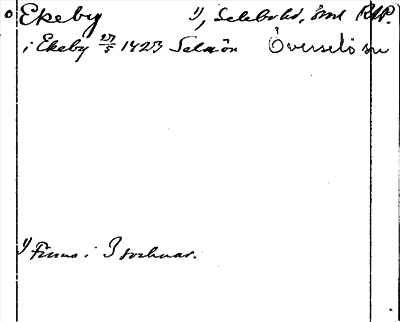 Ekeby 1), Selebo hd, Sml RAP.
i Ekeby 27/5 1423 Selaön Överselö sn
1) Finns i 3 socknar.